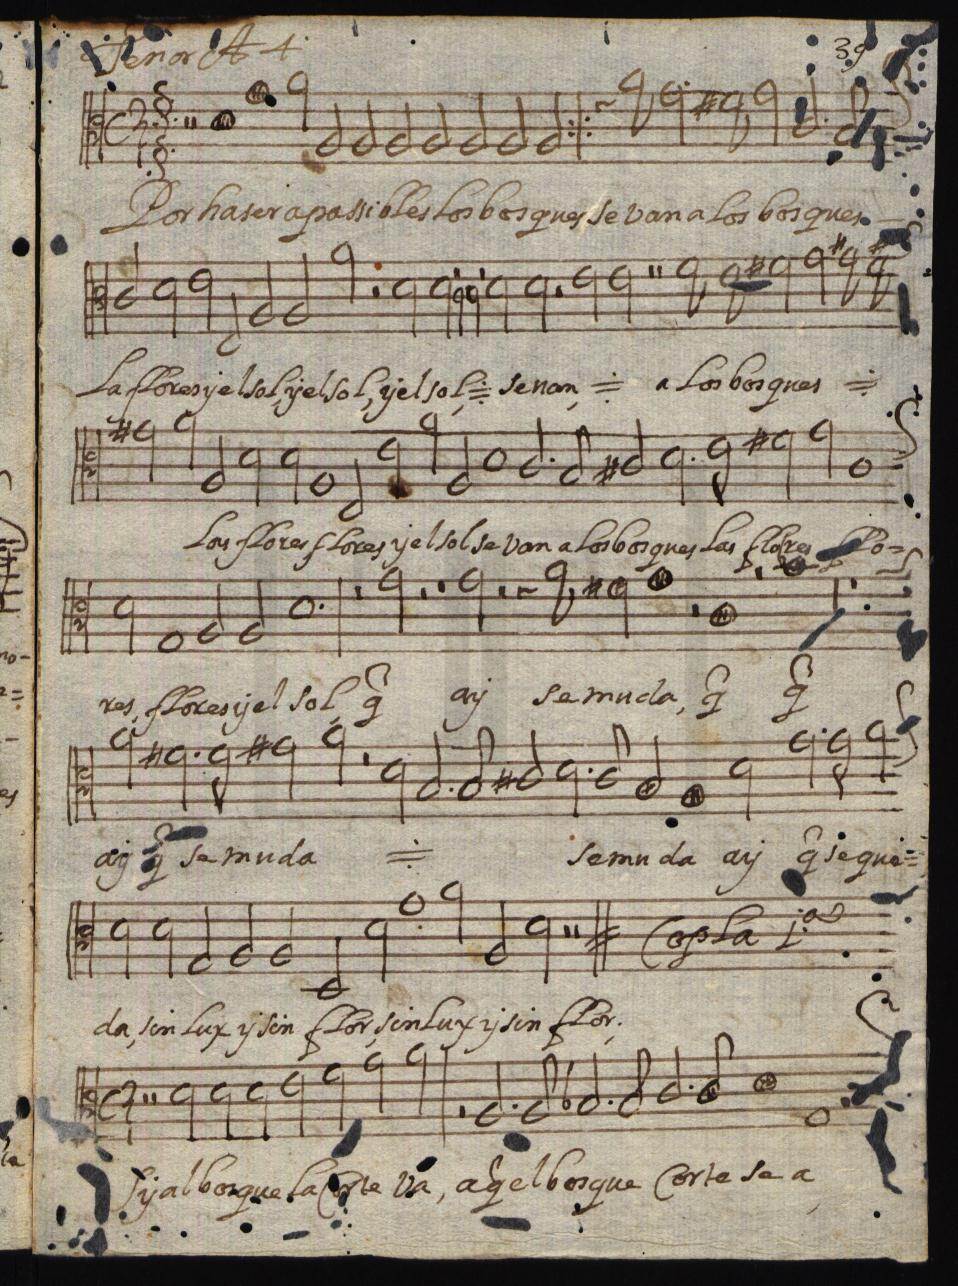 Tenor A 4
39
Por haser apassibles los bosques se van a los bosques
la flores y el sol, y el sol, y el sol, se van, a los bosques
Las flores flores y el sol se van a los bosques las flores flo=
res, flores y el sol, q̃ ay se muda, q̃ q̃
ay q̃ se muda se muda ay q̃ se que=
Copla 1.ª
da, sin lux y sin flor, sin lux y sin flor.
Si y al bosque la Corte va, a q̃ el bosque Corte se a